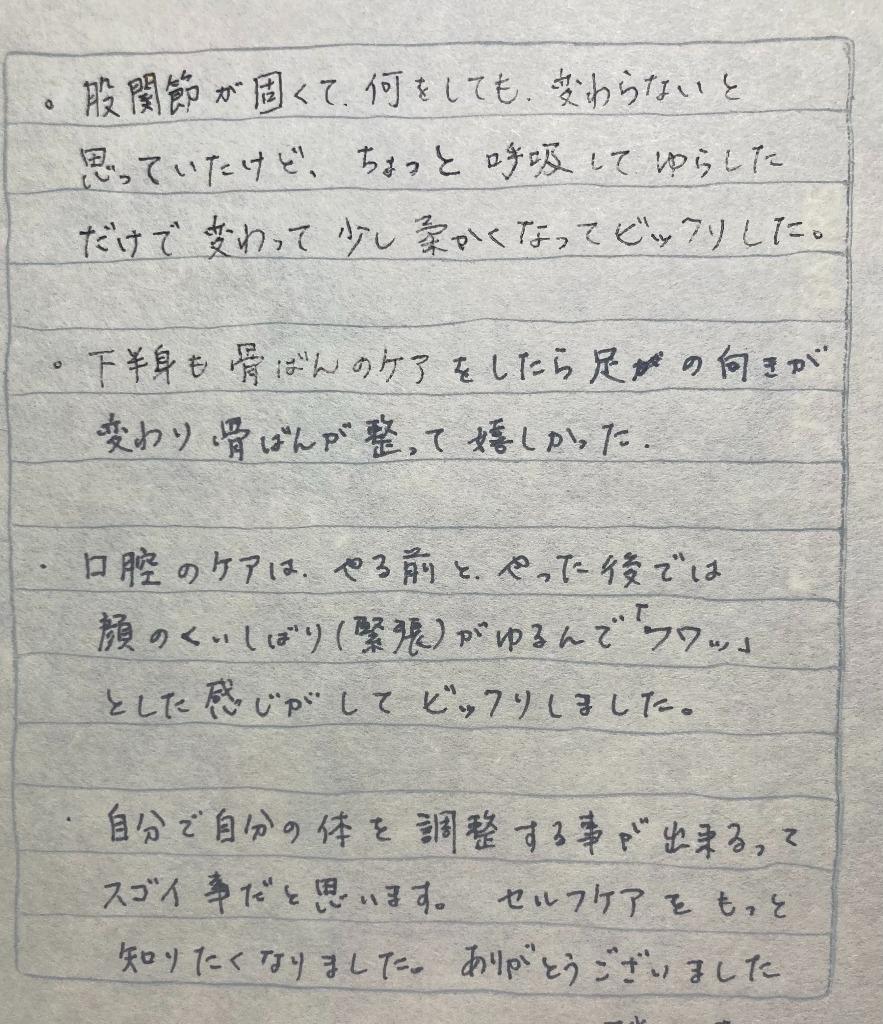 。股関節が固くて、何をしても、変わらないと
思っていたけど、ちょっと呼吸してゆらした
だけで変わって少し柔かくなってビックリした。
。下半身も骨ばんのケアをしたら足の向きが
変わり骨ばんが整って嬉しかった.
・口腔のケアは、やる前と、やった後では
顔のくいしばり(緊張)がゆるんで「フワッ」
とした感じがしてビックリしました。
・自分で自分の体を調整する事が出来るって
スゴイ事だと思います。 セルフケアをもっと
知りたくなりました。ありがとうございました